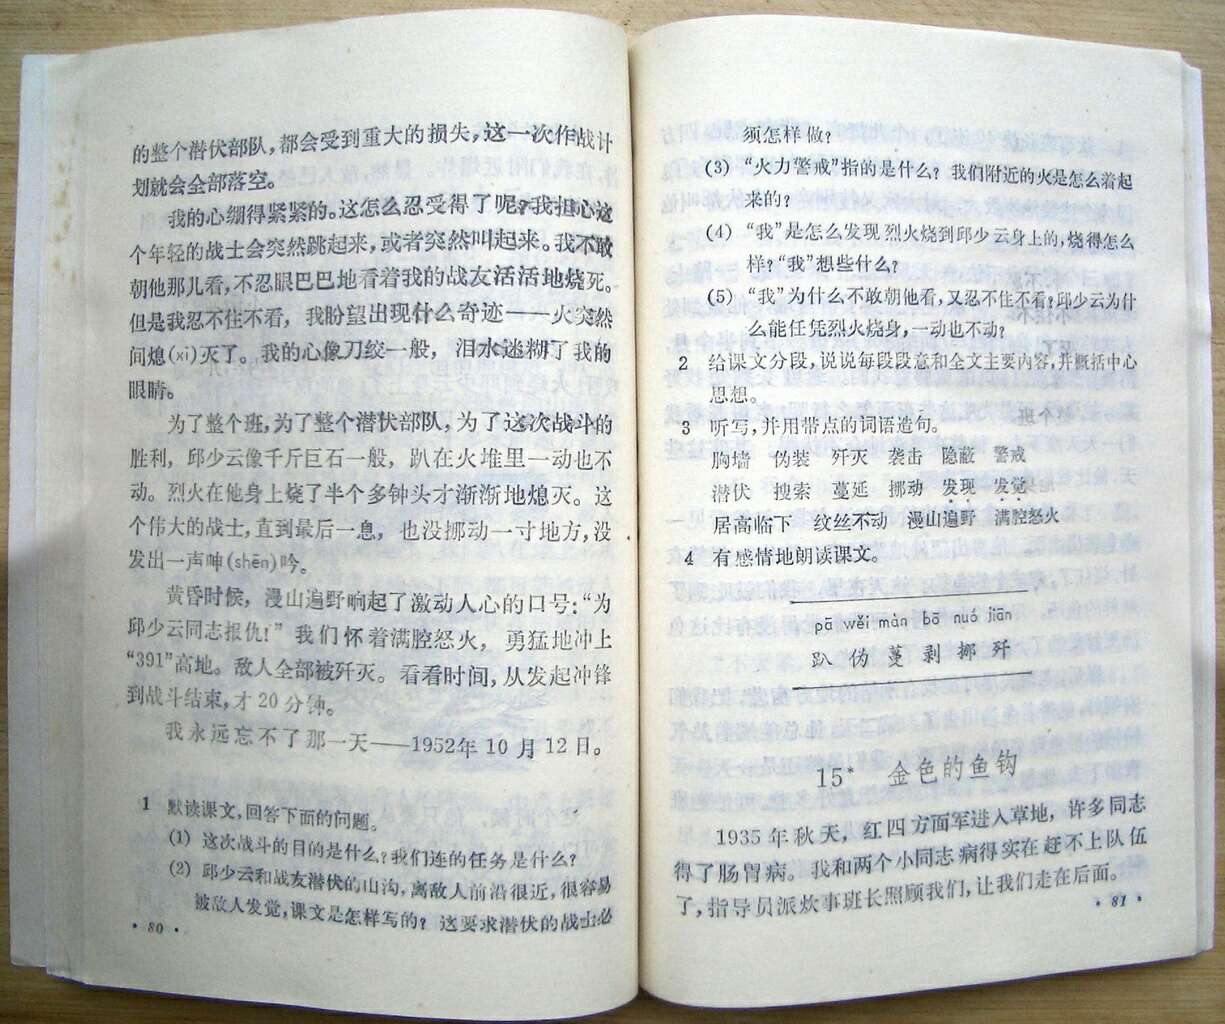 的整个潜伏部队,都会受到重大的损失,这一次作战计
划就会全部落空。
我的心绷得紧紧的。这怎么忍受得了呢?我担心这
个年轻的战士会突然跳起来,或者突然叫起来。我不敢
朝他那儿看,不忍眼巴巴地看着我的战友活活地烧死。
但是我忍不住不看,我盼望出现什么奇迹——火突然
间熄(xī)灭了。我的心像刀绞一般,泪水迷糊了我的
眼睛。
为了整个班,为了整个潜伏部队,为了这次战斗的
胜利,邱少云像千斤巨石一般,趴在火堆里一动也不
动。烈火在他身上烧了半个多钟头才渐渐地熄灭。这
个伟大的战士,直到最后一息,也没挪动一寸地方,没
发出一声呻(shēn)吟。
黄昏时候,漫山遍野响起了激动人心的口号:“为
邱少云同志报仇!”我们怀着满腔怒火,勇猛地冲上
“391”高地。敌人全部被歼灭。看看时间,从发起冲锋
到战斗结束,才20分钟。
我永远忘不了那一天——1952年10月12日。
1 默读课文,回答下面的问题。
(1) 这次战斗的目的是什么?我们连的任务是什么?
(2) 邱少云和战友潜伏的山沟,离敌人前沿很近,很容易
被敌人发觉,课文是怎样写的?这要求潜伏的战士必
· 80 ·
须怎样做?
(3) “火力警戒”指的是什么?我们附近的火是怎么着起
来的?
(4) “我”是怎么发现烈火烧到邱少云身上的,烧得怎么
样?“我”想些什么?
(5) “我”为什么不敢朝他看,又忍不住不看?邱少云为什
么能任凭烈火烧身,一动也不动?
2 给课文分段,说说每段段意和全文主要内容,并概括中心
思想。
3 听写,并用带点的词语造句。
胸墙 伪装 歼灭 袭击 隐蔽 警戒
潜伏 搜索 蔓延 挪动 发现 发觉
居高临下 纹丝不动 漫山遍野 满腔怒火
4 有感情地朗读课文。
pā wěi màn bō nuó jiān
趴 伪 蔓 剥 挪 歼
15* 金色的鱼钩
1935年秋天,红四方面军进入草地,许多同志
得了肠胃病。我和两个小同志病得实在赶不上队伍
了,指导员派炊事班长照顾我们,让我们走在后面。
· 81 ·